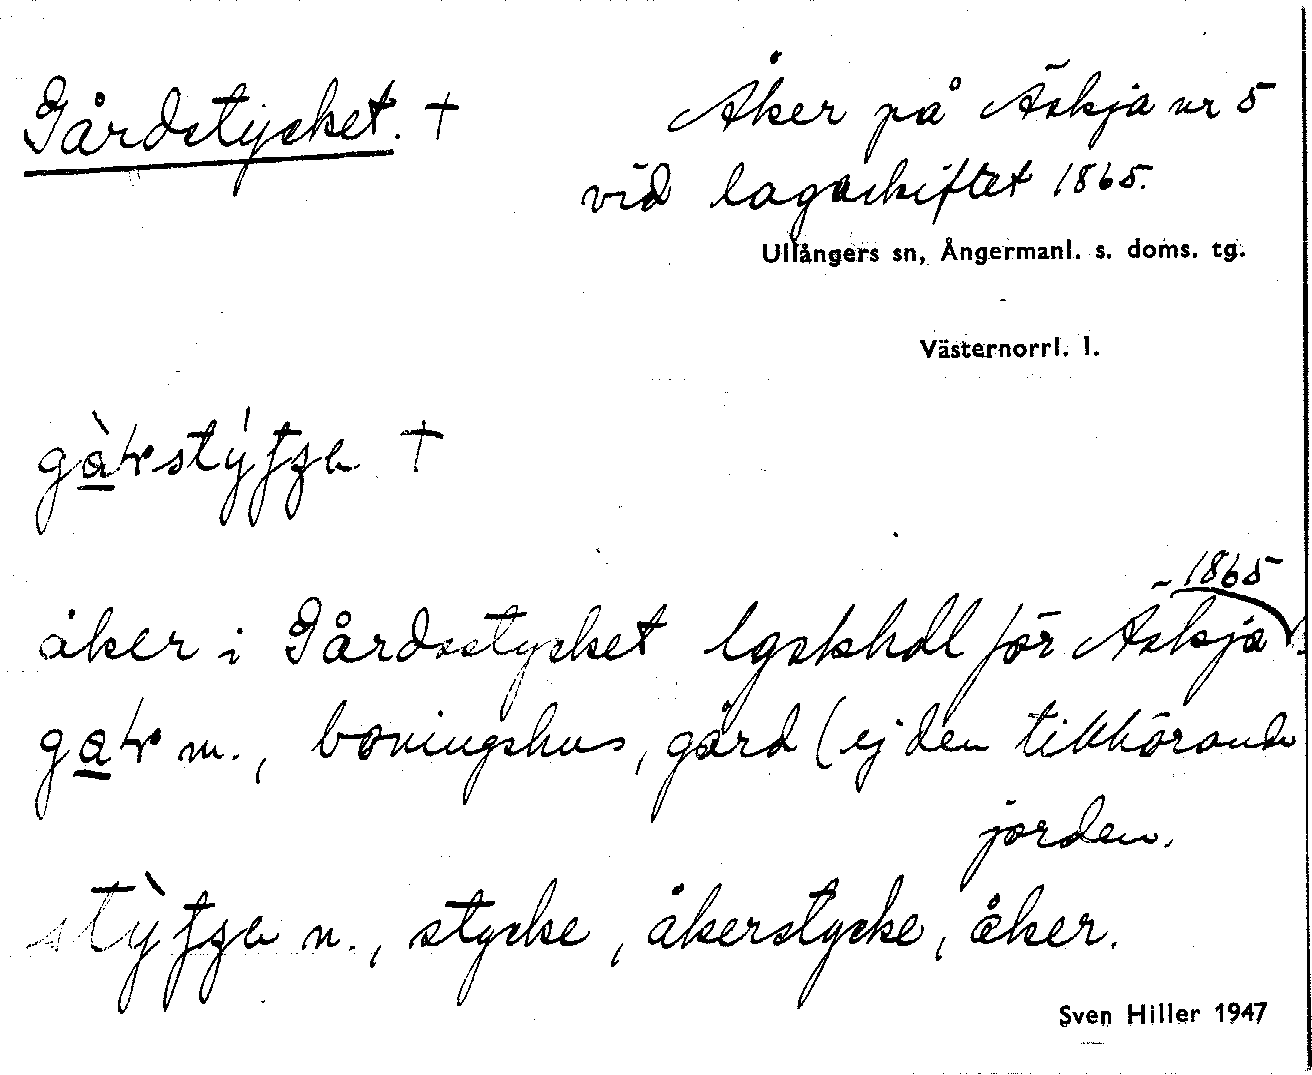 Gårdstycket. †
Åker på Äskja nr 5
vid lagaskiftet 1865.
Ullångers sn, Ångermanl. s. doms. tg.
Västernorrl. l.
†
1865
åker i Gårdsstycket lgskhdl för Äskja
m., boningshus, gård (ej den tillhörande
jorden.
n., stycke, åkerstycke, åker.
Sven Hiller 1947